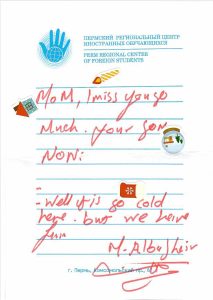 ПЕРМСКИЙ РЕГИОНАЛЬНЫЙ ЦЕНТР
ИНОСТРАННЫХ ОБУЧАЮЩИХСЯ
PERM REGIONAL CENTER
OF FOREIGN STUDENTS
MoM, I miss you so
Much. your son
NON:
- Well it is so cold
here. but we have
fun
M.
г. Пермь, Комсомольский пр.,